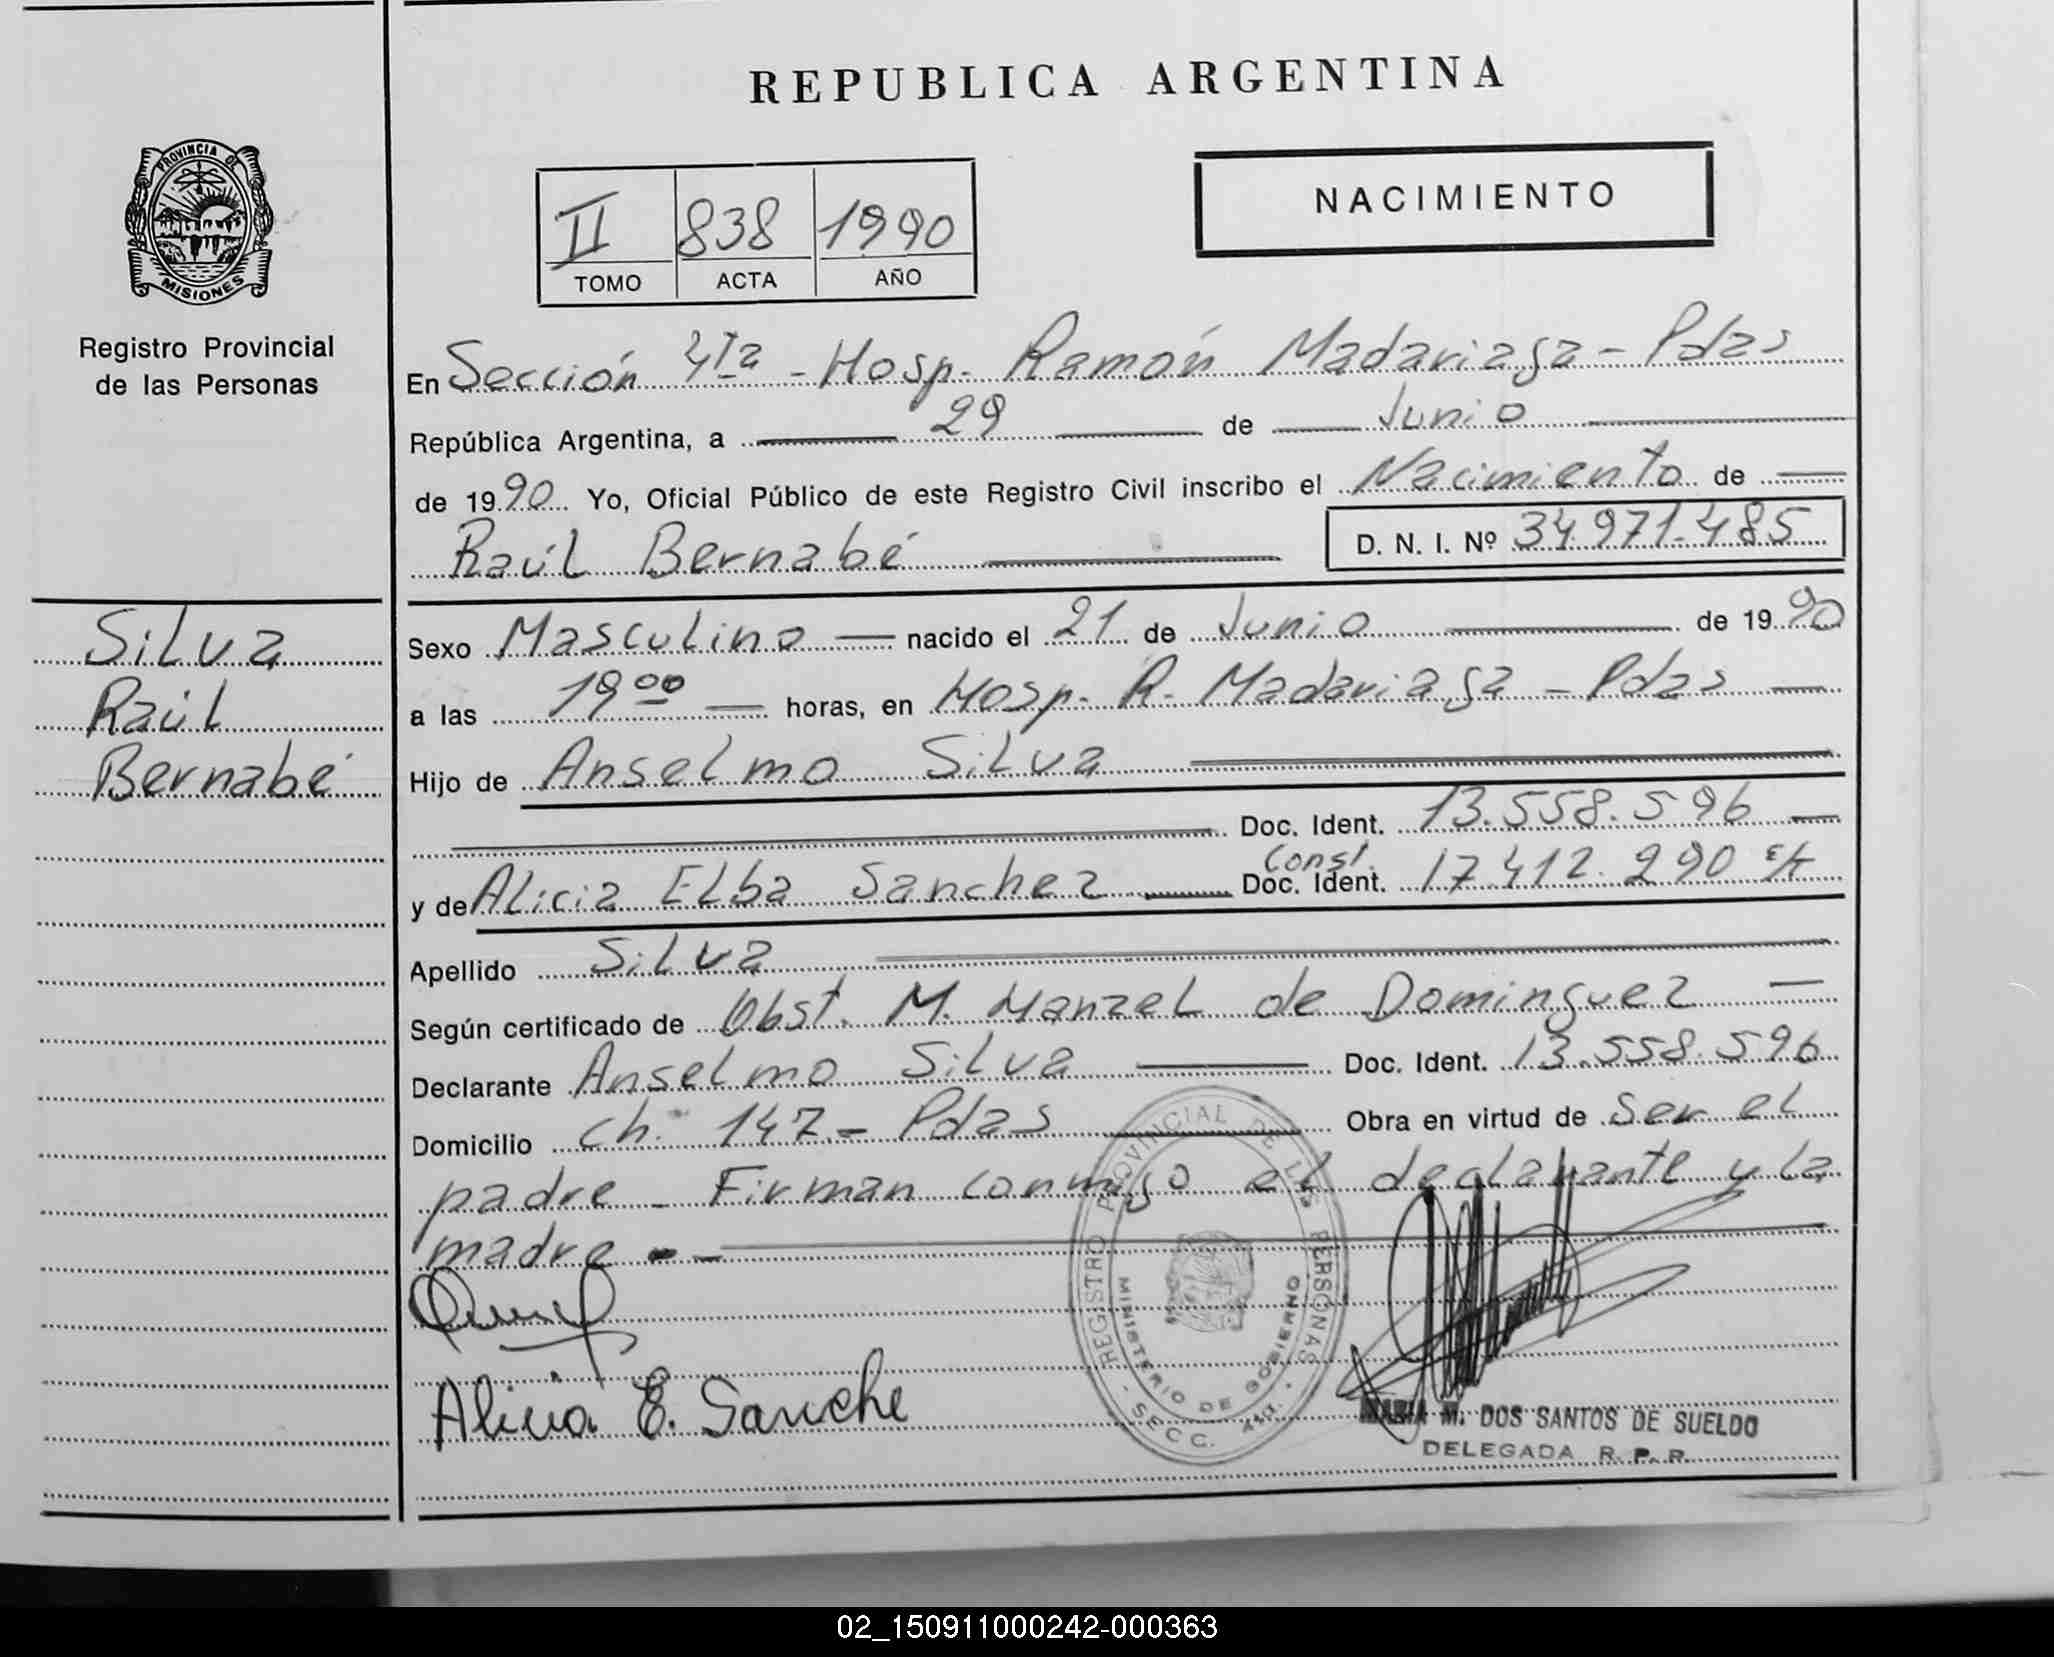 REPUBLICA ARGENTINA
PROVINCIA DE
MISIONES
Registro Provincial
de las Personas
NACIMIENTO
II 838 1990
TOMO ACTA AÑO
En Sección 4ta - Hosp. Ramón Madariaga - Pdas
República Argentina, a 29 de Junio
de 1990 Yo, Oficial Público de este Registro Civil inscribo el Nacimiento de
Raúl Bernabé D. N. I. Nº 34.971.485
Silva
Raúl
Bernabé
Sexo Masculino nacido el 21 de Junio de 1990
a las 19 00 horas, en Hosp. R. Madariaga - Pdas
Hijo de Anselmo Silva
Doc. Ident. 13.558.596
Const.
y de Alicia Elba Sanchez Doc. Ident. 17.412.290
Apellido Silva
Según certificado de Obst. M. Manzel de Dominguez
Declarante Anselmo Silva Doc. Ident. 13.558.596
Domicilio Ch. 147 - Pdas Obra en virtud de ser el
padre - Firman conmigo el declarante y la
madre - -
Alicia E. Sanche
REGISTRO PROVINCIAL DE LAS PERSONAS
MINISTERIO DE GOBIERNO
SECC. 4ta.
MARIA M. DOS SANTOS DE SUELDO
DELEGADA R. P. P.
02_150911000242-000363